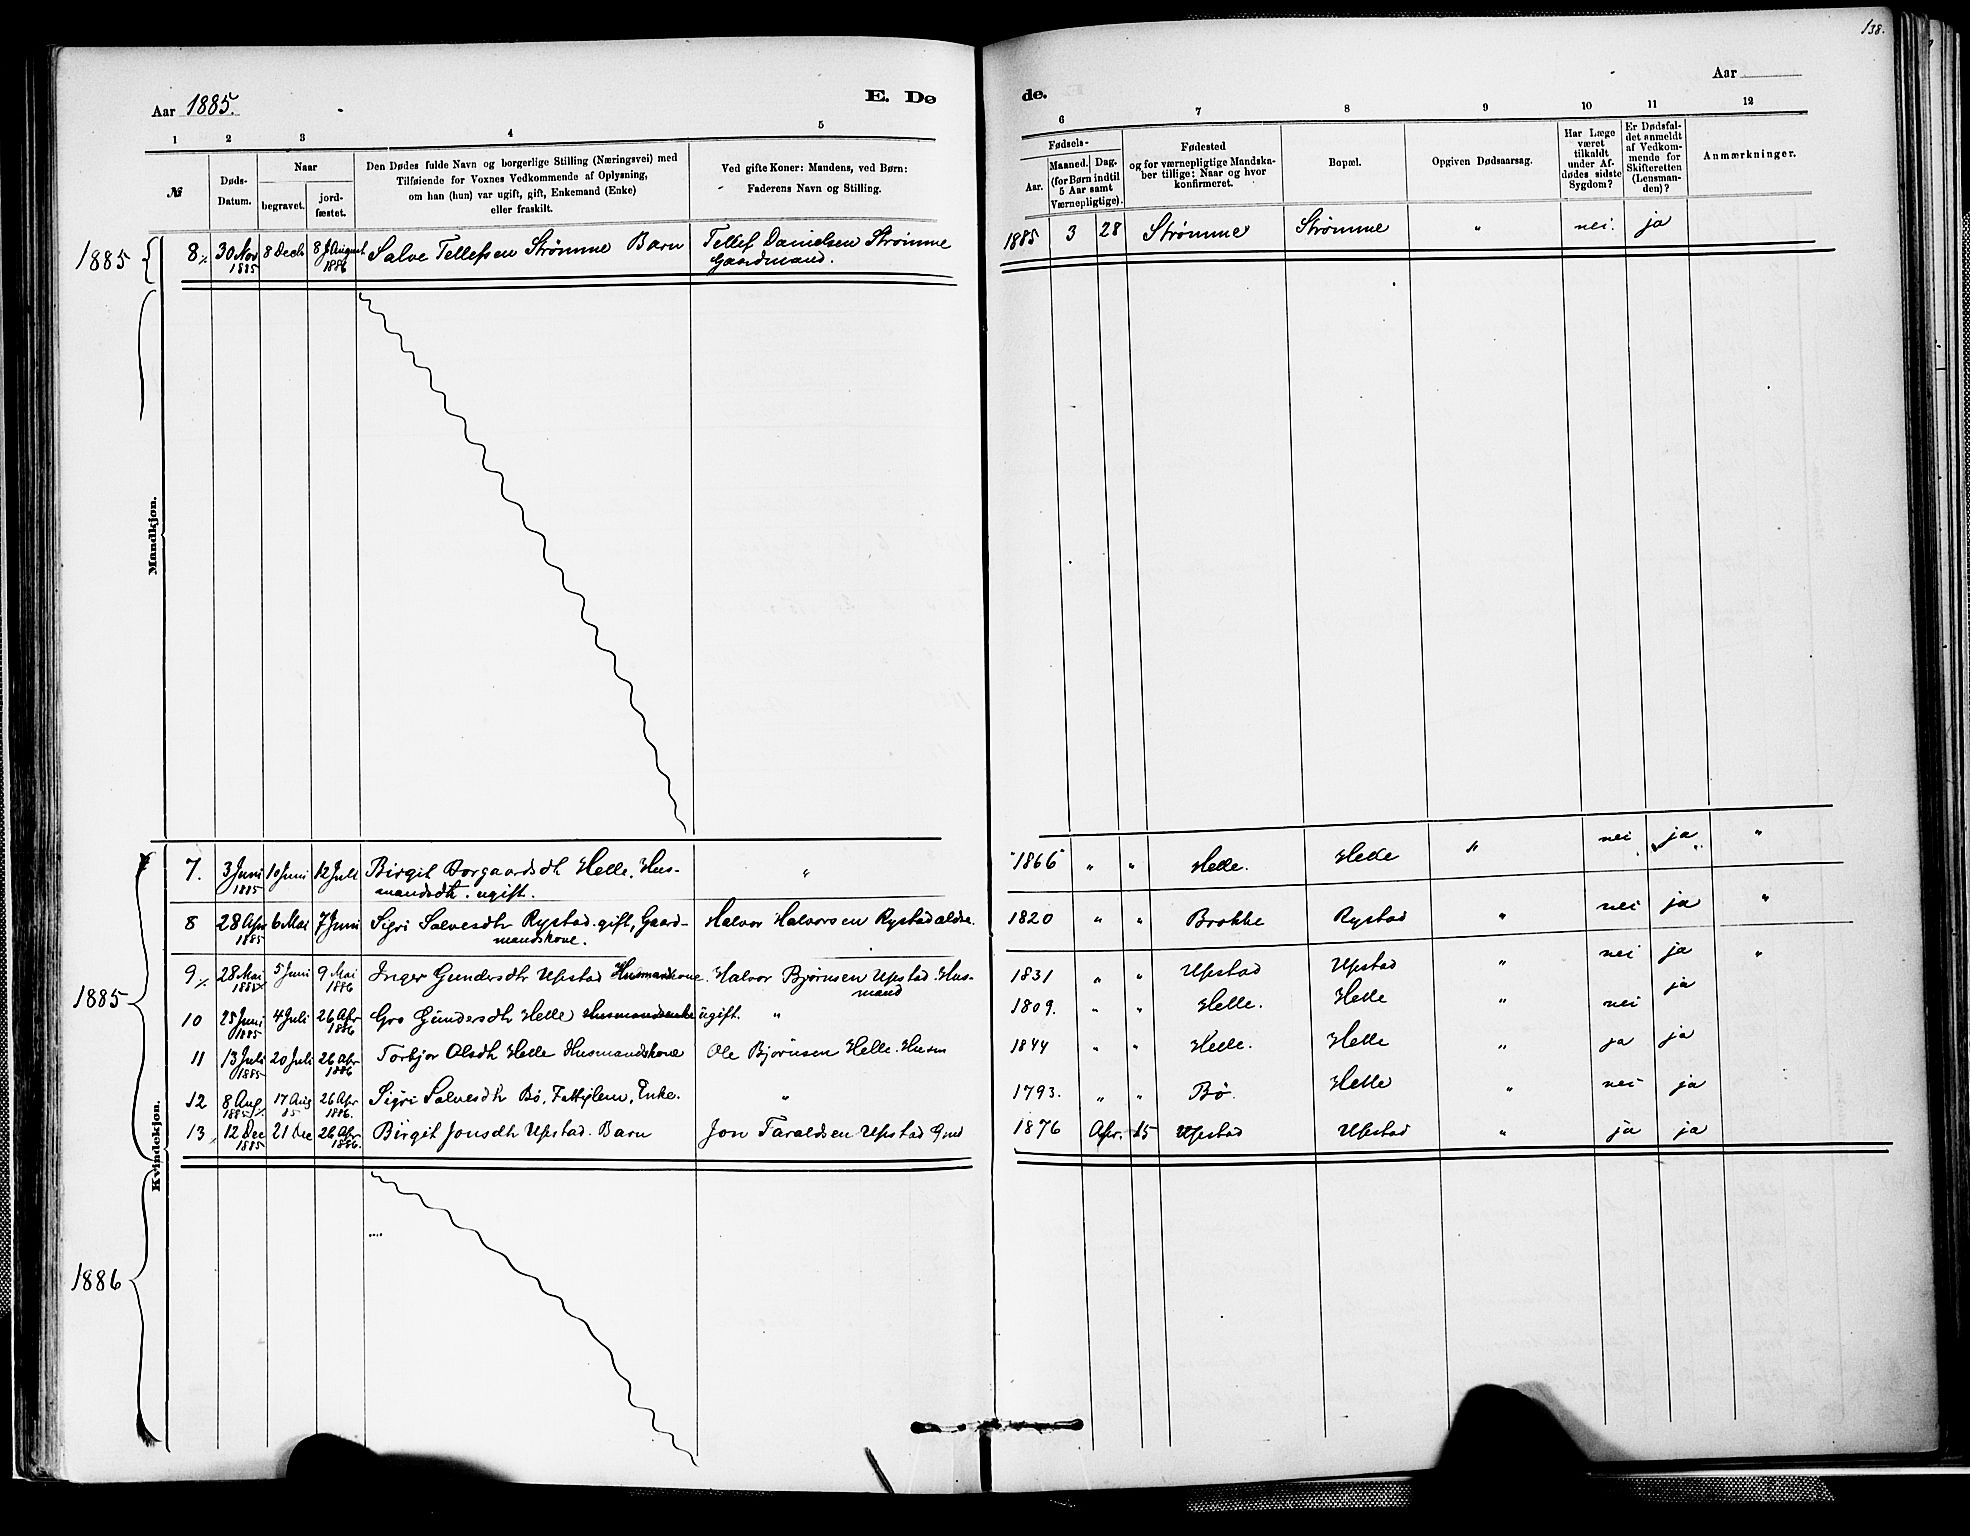 138.
Aar 1885.
E. Dø
de.
Aar
1 2 3 4 5
6 7 8 9 10 11 12
№
Døds-
Datum.
Naar
begravet.
jord-
fæstet.
Den Dødes fulde Navn og borgerlige Stilling (Næringsvei) med
Tilføiende for Voxnes Vedkommende af Oplysning,
om han (hun) var ugift, gift, Enkemand (Enke)
eller fraskilt.
Ved gifte Koner: Mandens, ved Børn:
Faderens Navn og Stilling.
Fødsels-
Aar.
Maaned.
Dag.
(for Børn indtil
5 Aar samt
Værnepligtige).
Fødested
og for værnepligtige Mandska-
ber tillige: Naar og hvor
konfirmeret.
Bopæl.
Opgiven Dødsaarsag.
Har Læge
været
tilkaldt
under Af-
dødes sidste
Sygdom?
Er Dødsfal-
det anmeldt
af Vedkom-
mende for
Skifteretten
(Lensman-
den)?
Anmærkninger.
Mandkjøn.
1885
8 30 Nov 1885 8 Decb 8 August 1886 Salve Tellefsen Strømme Barn Tellef Danielsen Strømme
Gaardmand.
1885 3 28 Strømme Strømme " nei. ja
Kvindekjøn.
1885
7. 3 Juni 1885 10 Juni 12 Juli Birgit Borgaardsdtr Helle. Hus-
mandsdtr. ugift. "
1866 " " Helle. Helle " nei ja "
8 28 Apr 1885 6 Mai 7 Juni Sigri Salvesdtr Rystad. gift, Gaard-
mandskone. Halvor Halvorsen Rystad aldre.
1820 " " Brokke Rystad " nei ja "
9 28 Mai 1885 5 Juni 9 Mai 1886 Inger Gundersdtr Upstad Husmandskone. Halvor Bjørnsen Upstad. Hus-
mand
1831 " " Upstad Upstad " nei ja "
10 25 Juni 1885 4 Juli 26 Apr 1886 Gro Gundersdtr Helle Husmandsenke ugift. "
1809. " " Helle. Helle " nei ja
11 13 Juli 1885 20 Juli 26 Apr 1886 Torbjor Olsdtr Helle Husmandskone Ole Bjørnsen Helle. Husm
1844 " " Helle. Helle " ja ja
12 8 Aug 1885 17 Aug 26 Apr 1886. Sigri Salvesdtr Bø, Enke. "
1793. " " Bø. Helle " nei ja
13 12 Dec 1885 21 Dec 26 Apr 1886. Birgit Jonsdtr Upstad. Barn Jon Taraldsen Upstad Gmd
1876 Apr. 15 Upstad Upstad " ja ja
1886